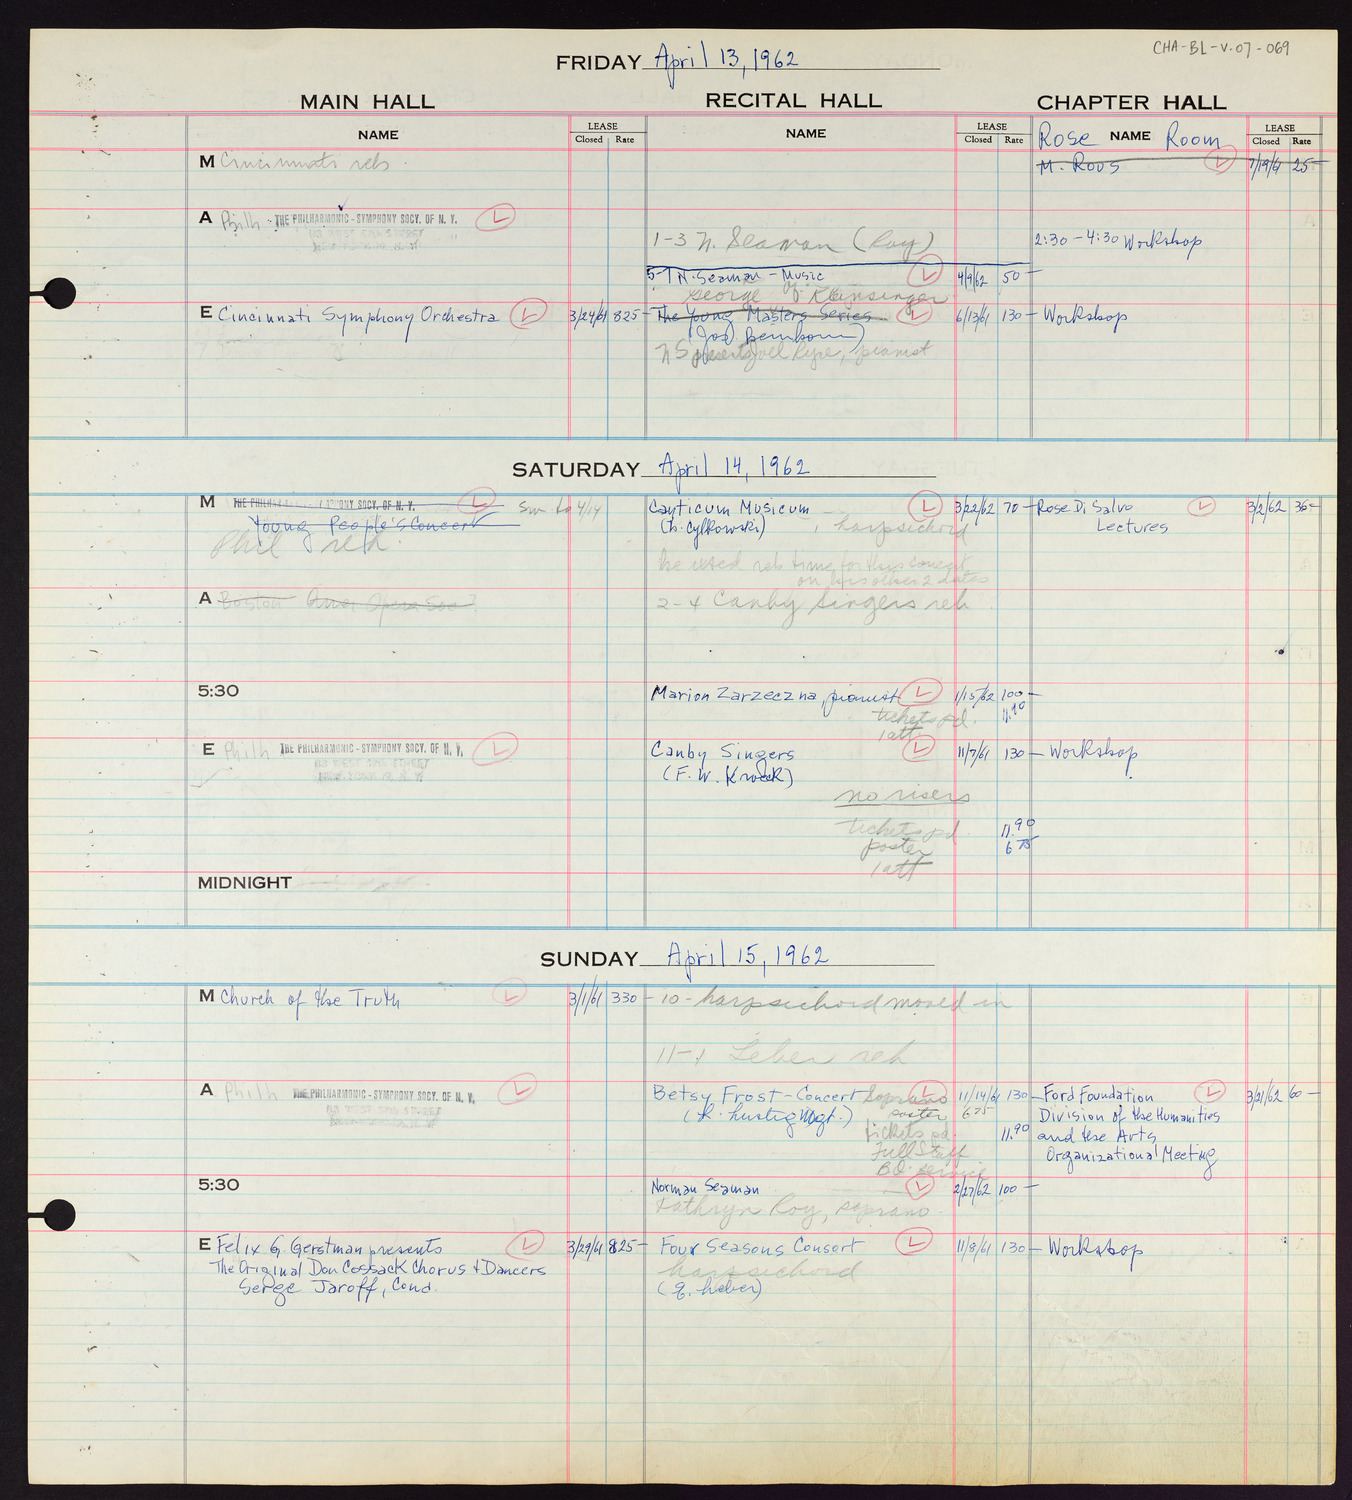 CHA-BL-V.07-069
FRIDAY April 13, 1962
MAIN HALL RECITAL HALL CHAPTER HALL
NAME LEASE Closed Rate NAME LEASE Closed Rate Rose NAME Room LEASE Closed Rate
M Cincinnati reh M. Rous L 7/19/61 25-
A Philh THE PHILHARMONIC-SYMPHONY SOCY. OF N. Y. L
1-3 N. Seaman (Roy) 2:30-4:30 Workshop
5-7 N. Seaman - Music L 4/9/62 50-
George Kleinsinger
E Cincinnati Symphony Orchestra L 3/24/61 825- The Young Masters Series L 6/13/61 130- Workshop
N S presents Joel Ryce, pianist
SATURDAY April 14, 1962
M THE PHILHARMONIC-SYMPHONY SOCY. OF N. Y. L Sw to 4/14 Canticum Musicum L 3/22/62 70- Rose Di Salvo L 3/2/62 35-
Young People's Concert (Th. Cylkowski) harpsichord Lectures
Phil reh
he used reh time for this concert
on his other 2 dates
A Boston Opera Soc? 2-4 Canby Singers reh
5:30 Marion Zarzeczna, pianist L 1/15/62 100-
tickets pd. 11.90
1 att
E Philh THE PHILHARMONIC-SYMPHONY SOCY. OF N. Y. L Canby Singers L 11/7/61 130- Workshop
(F. W. Kroek)
no risers
tickets pd. 11.90
poster 6 75
1 att
MIDNIGHT
SUNDAY April 15, 1962
M Church of the Truth L 3/1/61 330- 10- harpsichord moved in
11-1 Leber reh
A Philh THE PHILHARMONIC-SYMPHONY SOCY. OF N. Y. L Betsy Frost-Concert Soprano L 11/14/61 130- Ford Foundation L 3/21/62 60-
poster 6 75 Division of the Humanities
tickets pd. 11.90 and the Arts
Full Staff Organizational Meeting
BO. service
5:30 Norman Seaman L 2/27/62 100-
Kathryn Roy, soprano.
E Felix G. Gerstman presents L 3/29/61 825- Four Seasons Consort L 11/8/61 130- Workshop
The Original Don Cossack Chorus + Dancers harpsichord
Serge Jaroff, Cond. (G. Leber)